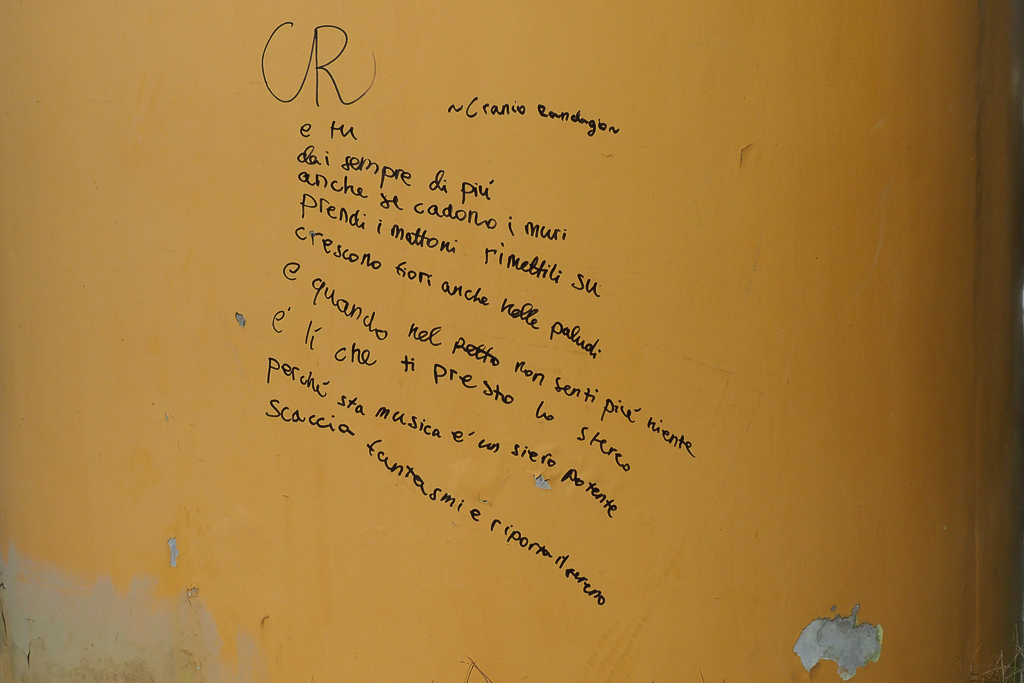 CR
~Cranio Randagio~
e tu
dai sempre di piú
anche se cadono i muri
prendi i mattoni rimettili su
crescono fiori anche nelle paludi
e quando nel petto non senti piú niente
é lí che ti presto lo stereo
perché sta musica é un siero potente
scaccia fantasmi e riporta il sereno